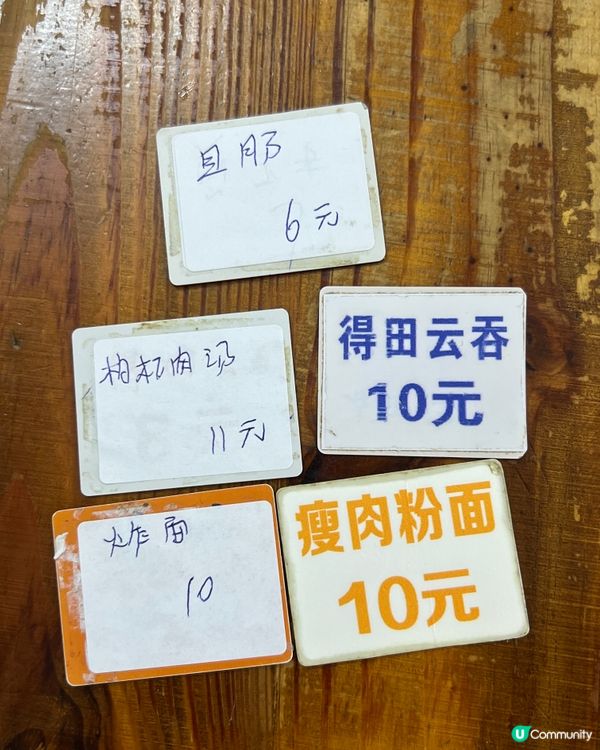 旦肠
6元
枸杞肉汤
11元
得田云吞
10元
炸面
10
瘦肉粉面
10元
U Community